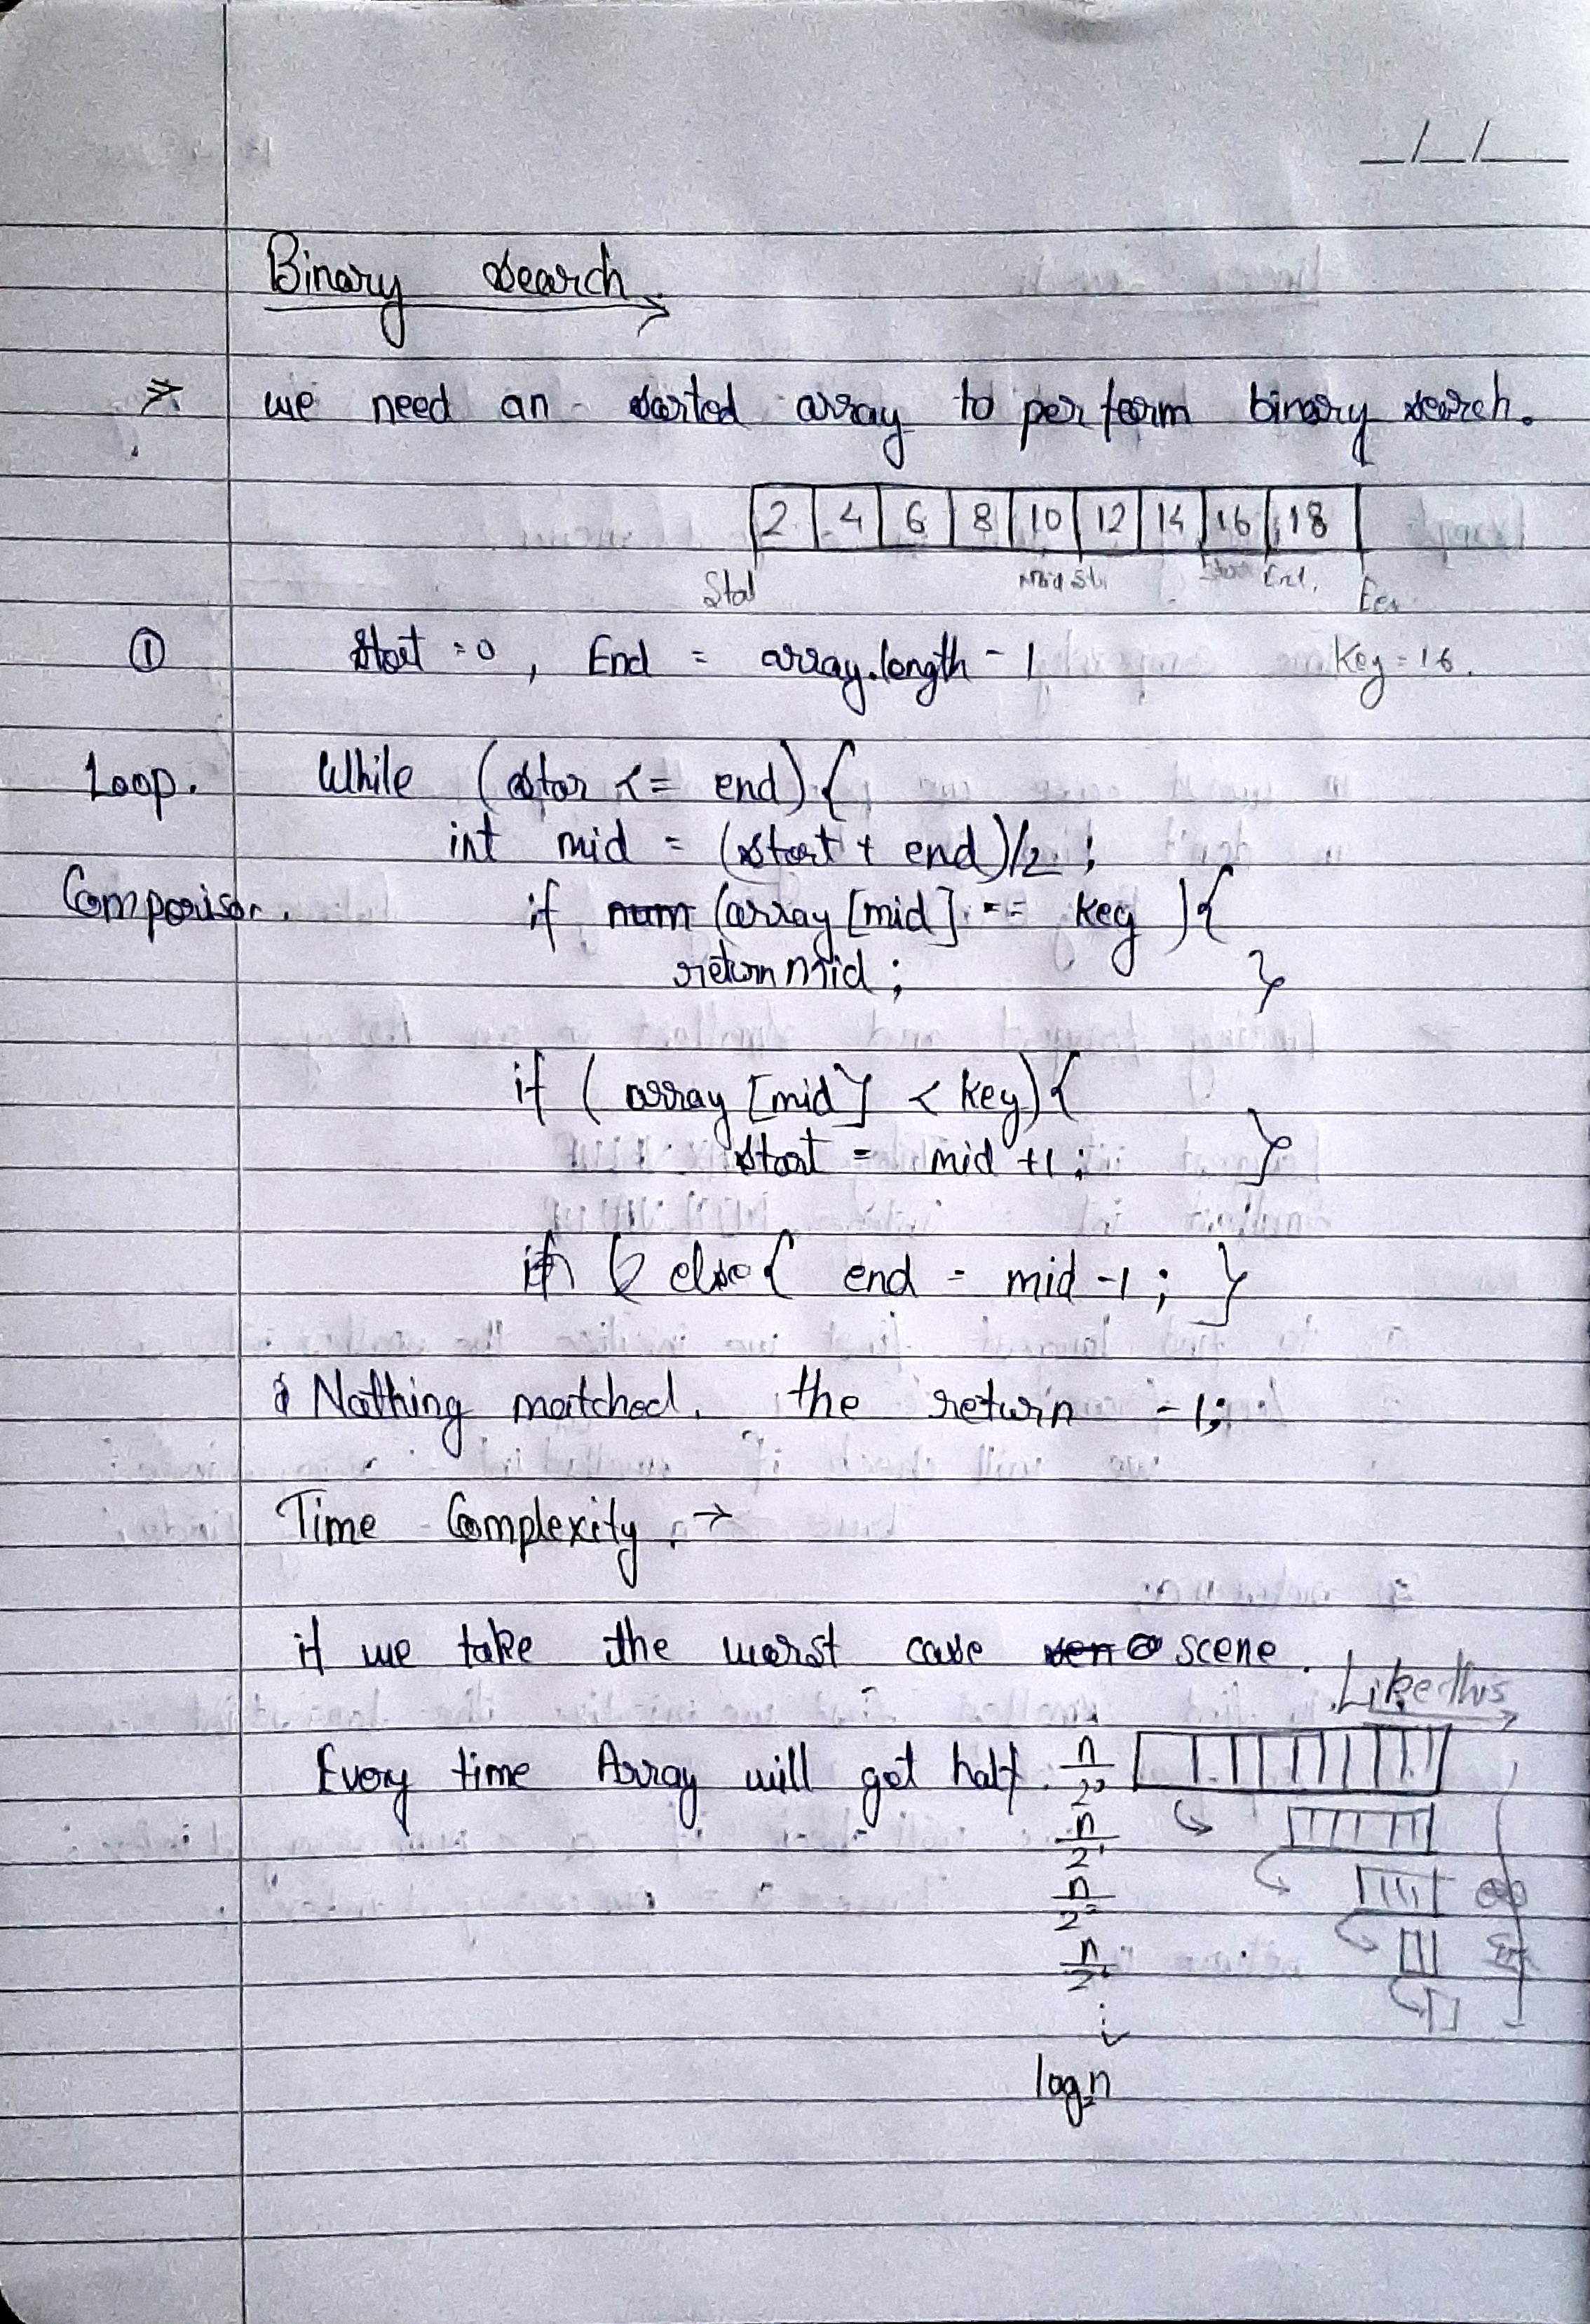 _/_/__
Binary search
⇒ we need an sorted array to perform binary search.
2 4 6 8 10 12 14 16 18
Mid St. End.
① Start = 0, End = array.length - 1 Key = 16.
Loop. While (star <= end) {
int mid = (start + end)/2 ;
Comparison. if num (array [mid] == key ) {
return mid ; }
if ( array [mid] < key) {
start = mid +1 ; }
else { end = mid -1 ; }
Nothing matched. the return -1;
Time Complexity. →
if we take the worst case scene.
Like this
Every time Array will get half. n/2⁰
n/2¹
n/2²
n/2
log₂n